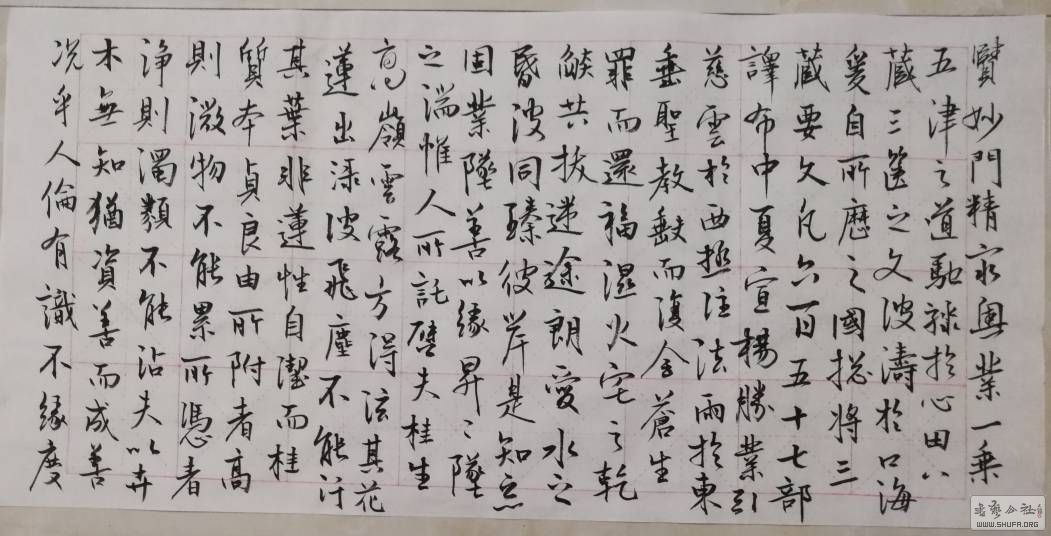 賾妙門精窮奧業一乘
五津之道馳驟於心田八
藏三篋之文波濤於口海
爰自所歷之國総將三
藏要文凡六百五十七部
譯布中夏宣楊勝業引
慈雲於西極注法雨於東
垂聖教缺而復全蒼生
罪而還福濕火宅之乾
燄共拔迷途朗愛水之
昏波同臻彼岸是知惡
因業墜善以緣昇〻墜
之端惟人所託譬夫桂生
高嶺雲露方得泫其花
蓮出淥波飛塵不能汙
其葉非蓮性自潔而桂
質本貞良由所附者高
則微物不能累所憑者
淨則濁類不能沾夫以卉
木無知猶資善而成善
況乎人倫有識不緣慶
書藝公社
WWW.SHUFA.ORG